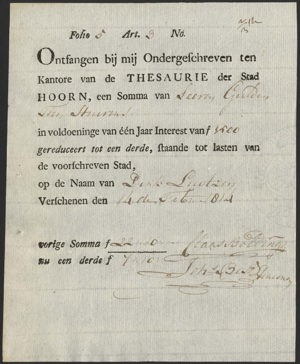 Folio 5 Art. 3 No.
Ontfangen bij mij Ondergeschreven ten
Kantore van de THESAURIE der Stad
HOORN, een Somma van Seeven Gulden
Tien Stuivers
in voldoeninge van één Jaar Interest van ƒ
gereduceert tot een derde, staande tot lasten van
de voorschreven Stad,
op de Naam van Dirk
Verschenen den 14 de Febru 1814
vorige Somma ƒ 22 10
nu een derde ƒ 7 10